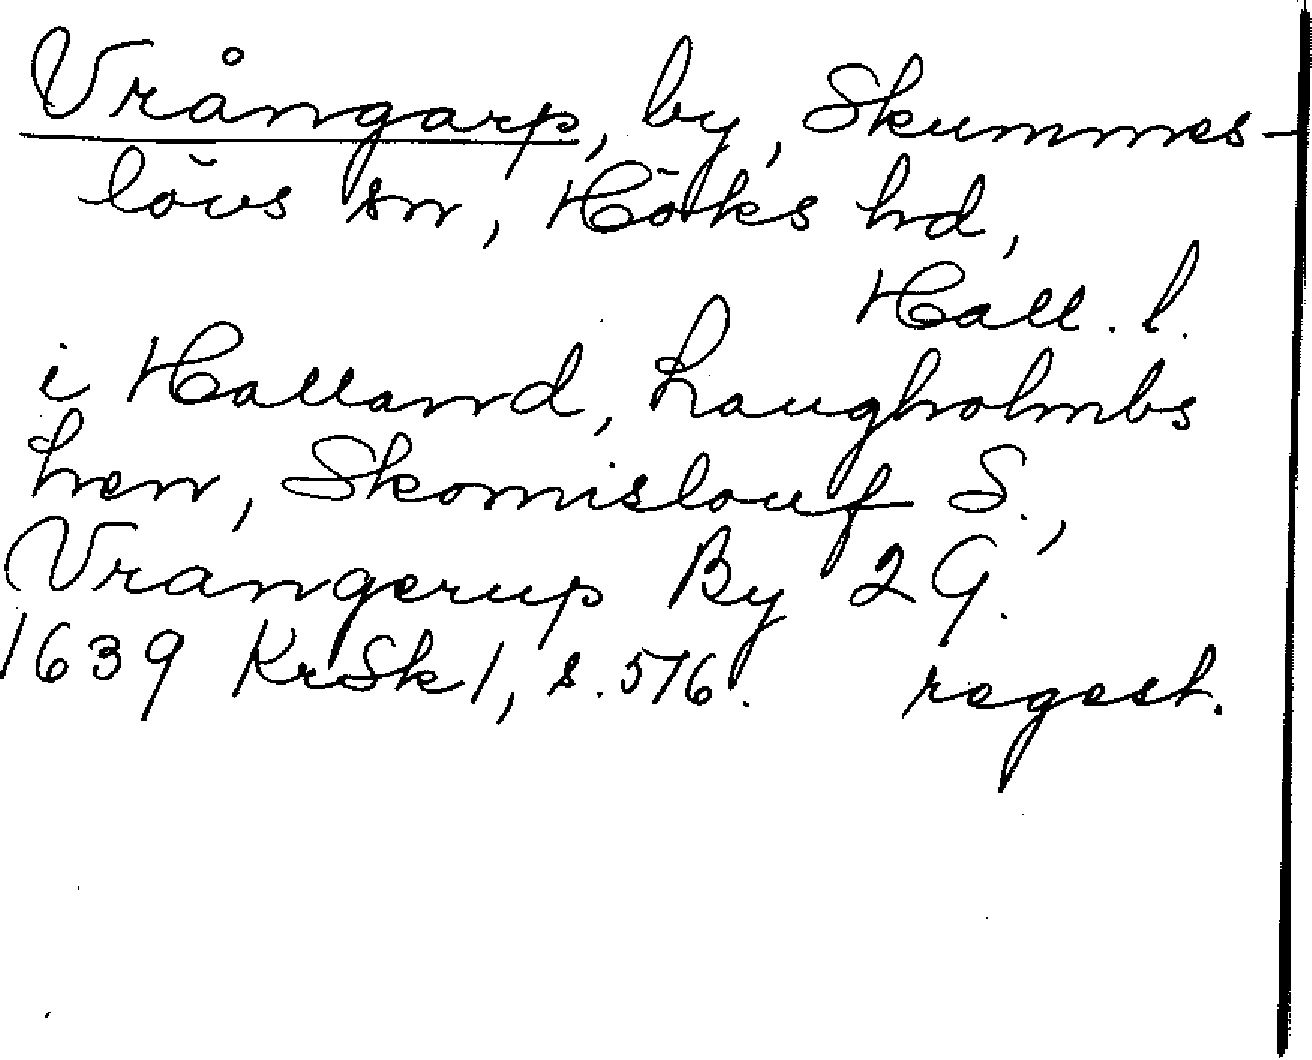 Vrångarp, by, Skummes-
lövs sn, Höks hd,
Hall. l.
i Halland, Laugholmbs
Len, Skomislouf S.,
Vrangerup By 2 G.
1639 KrSk 1, s. 576. regest.